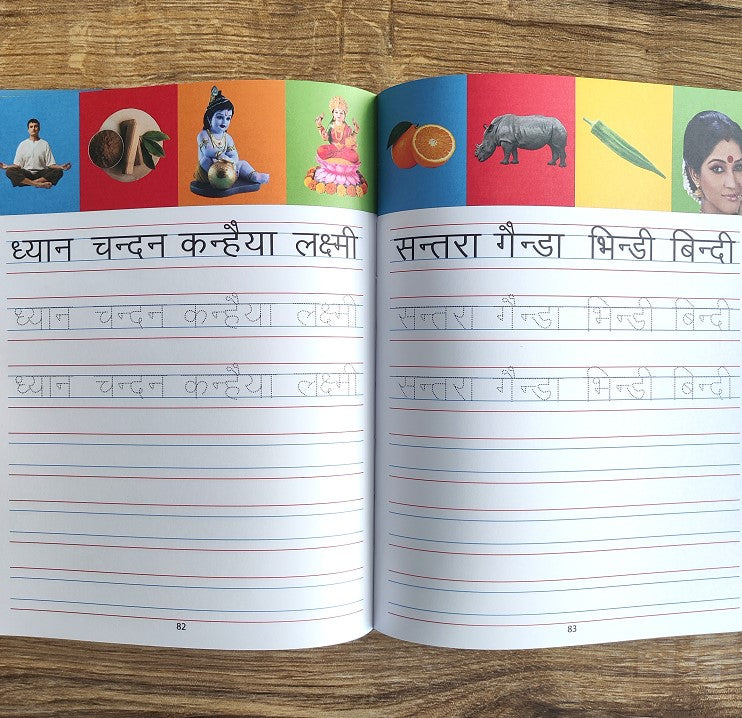 ध्यान चन्दन कन्हैया लक्ष्मी
ध्यान चन्दन कन्हैया लक्ष्मी
ध्यान चन्दन कन्हैया लक्ष्मी
82
सन्तरा गैन्डा भिन्डी बिन्दी
सन्तरा गैन्डा भिन्डी बिन्दी
सन्तरा गैन्डा भिन्डी बिन्दी
83